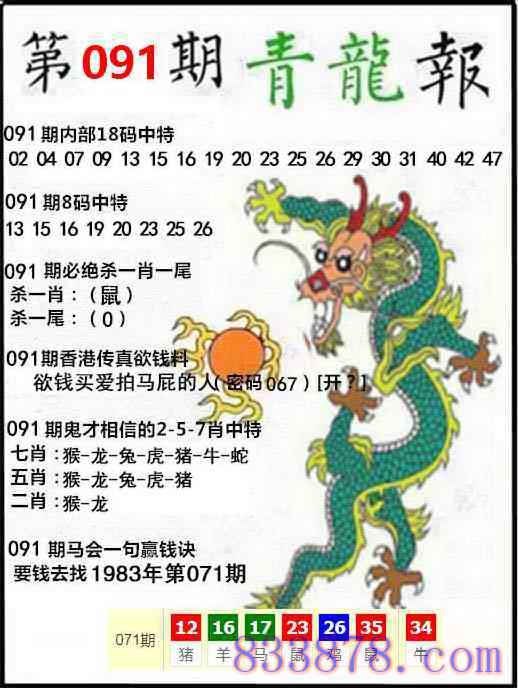 第091期青龍報
091期内部18码中特
02 04 07 09 13 15 16 19 20 23 25 26 29 30 31 40 42 47
091期8码中特
13 15 16 19 20 23 25 26
091 期必绝杀一肖一尾
杀一肖：（鼠）
杀一尾：（0）
091期香港传真欲钱料
欲钱买爱拍马屁的人(密码067)[开？]
091期鬼才相信的2-5-7肖中特
七肖：猴-龙-兔-虎-猪-牛-蛇
五肖：猴-龙-兔-虎-猪
二肖：猴-龙
091 期马会一句赢钱诀
要钱去找1983年第071期
071期 12 16 17 23 26 35 34
猪 羊 马 鼠 鸡 鼠 牛
833878.com